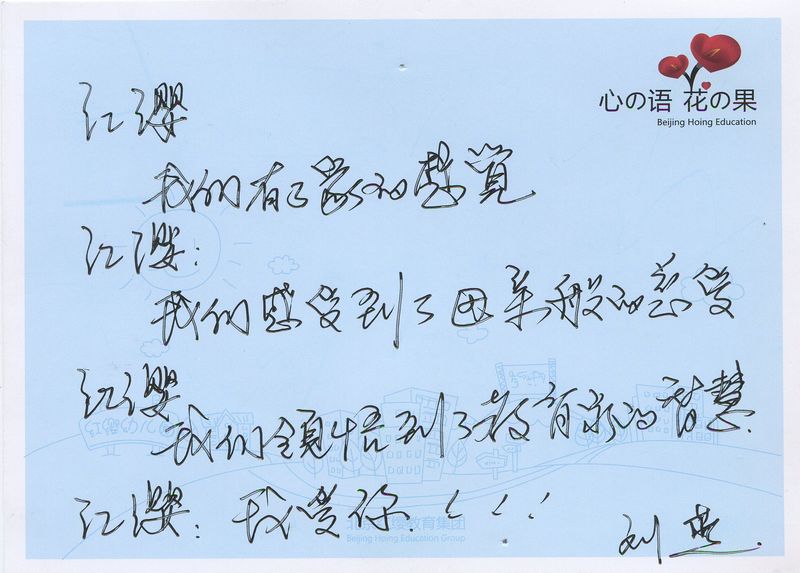 心の语 花の果
Beijing Hoing Education
红缨
我们有了家的感觉
红缨:
我们感受到了母亲般的慈爱
红缨
我们领悟到了教育家的智慧.
红缨幼儿园
红缨: 我爱你!!!
北京红缨教育集团
Beijing Hoing Education Group
刘